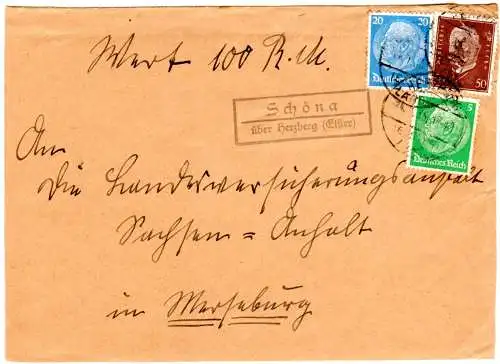 Wert 100 R.M.
20 20
Deutsches Reich
50
5
Deutsches Reich
Schöna
über Herzberg (Elster)
An
die Landesversicherungsanstalt
Sachsen = Anhalt
in Merseburg